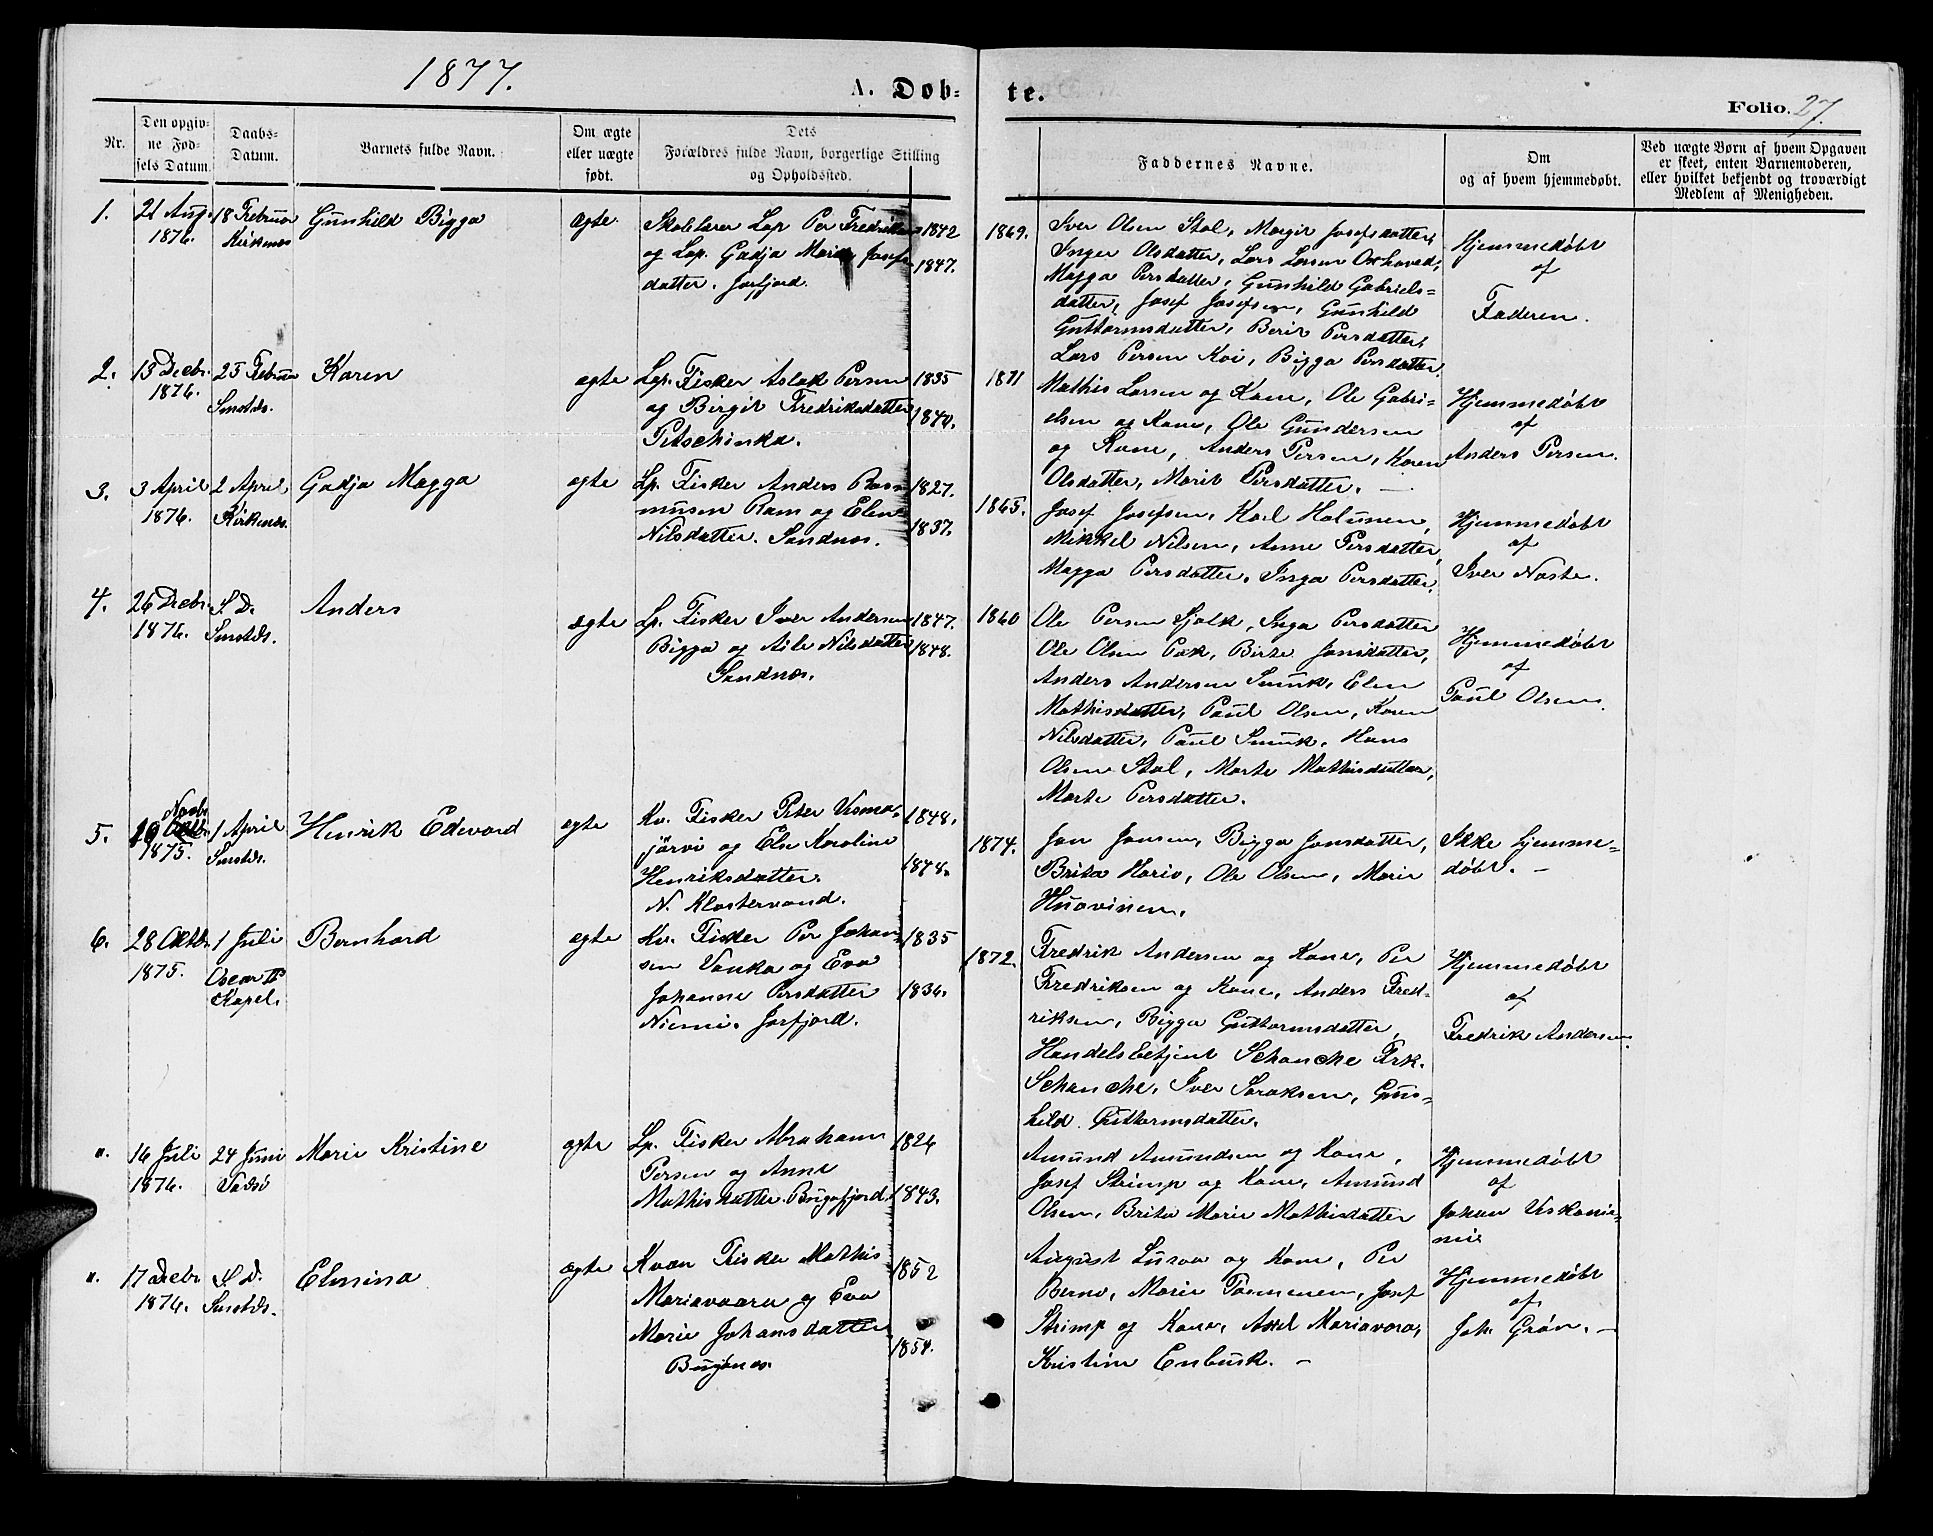 1877.
A. Døb-
te.
Folio. 27.
Nr.
Den opgiv-
ne Fød-
sels Datum.
Daabs-
Datum.
Barnets fulde Navn.
Om ægte
eller uægte
født.
Dets
Forældres fulde Navn, borgerlige Stilling
og Opholdssted.
Faddernes Navne.
Om
og af hvem hjemmedøbt.
Ved uægte Børn af hvem Opgaven
er skeet, enten Barnemoderen,
eller hvilket bekjendt og troværdigt
Medlem af Menigheden.
1.
21 Aug.
1876.
18 Februar
Kirkenes
Gunhild Bigga
ægte.
Skolelærer Lap Per
og Lap. Gadja Marie Josefs-
datter. Jarfjord.
1842
1847.
1869.
Iver Olsen Stal, Margit Josefsdatter,
Inger Olsdatter, Lars Larsen Oxhoved,
Magga Persdatter, Gunhild Gabriels-
datter, Josef Josefsen, Gunhild
Guttormsdatter, Berit Persdatter,
Lars Persen Koi, Bigga Persdatter.
Hjemmedøbt
af
Faderen.
2.
13 Decbr.
1876.
25 Februar
Smstds.
Karen
ægte
Lap. Fisker Aslak Persen
og Birgit Fredriksdatter
Petschinka.
1835
1840.
1871
Mathis Larsen og Kone, Ole Gabri-
elsen og Kone, Ole Gundersen
og Kone, Anders Persen, Karen
Olsdatter, Marit Persdatter. —
Hjemmedøbt
af
Anders Persen.
3.
3 April
1876.
2 April
Kirkenes.
Gadja Magga
ægte
Lp. Fisker Anders Ras-
musen Ram og Elen
Nilsdatter. Sandnes.
1827.
1837.
1865.
Josef Josefsen, Karl Halunen,
Mikkel Nilsen, Anne Persdatter,
Magga Persdatter, Inga Persdatter.
Hjemmedøbt
af
Iver Naste.
4.
26 Decbr.
1876.
S. D.
Smstds.
Anders
ægte
Lp. Fisker Iver Andersen
Bigga og Aile Nilsdatter
Sandnes.
1847.
1848.
1860
Ole Persen Sjolk, Inga Persdatter
Ole Olsen Pak, Birte Jonsdatter,
Anders Andersen Smuk, Elen
Mathisdatter, Paul Olsen, Karen
Nilsdatter, Paul Smuk, Hans
Olsen Stal, Marte Mathisdatter,
Marte Persdatter.
Hjemmedøbt
af
Paul Olsen.
5.
Novbr.
1875.
1 April
Smstds.
Henrik Edevard
ægte
Kv. Fisker Peter Visma-
järvi og Else Karoline
Henriksdatter.
N. Klostervand.
1848.
1848.
1874.
Jon Jonsen, Bigga Jonsdatter,
Brita Hario, Ole Olsen, Marie
Huovinen.
Ikke hjemme-
døbt. —
6.
28 Oktb.
1875.
1 Juli
Oscar II
Kapel.
Bernhard
ægte
Kv. Fisker Per Johan-
sen Vanka og Eva
Johanne Persdatter
Niemi. Jarfjord.
1835
1836.
1872.
Fredrik Andersen og Kone, Per
Fredriksen og Kone, Anders Fred-
riksen, Bigga Guttormsdatter,
Handelsbetjent Schanche Frk.
Schanche, Iver Saraksen, Gun-
hild Guttormsdatter.
Hjemmedøbt
af
Fredrik Andersen.
".
16 Juli
1876.
24 Juni
Vadsø
Marie Kristine
ægte
Lp. Fisker Abraham
Persen og Anne
Mathisdatter. Bugøfjord.
1826
1843.
Amund Amundsen og Kone,
Josef Strimp og Kone, Amund
Olsen, Brita Marie Mathisdatter
Hjemmedøbt
af
Johan Uskanie-
mi
".
17 Decbr
1876.
S. D.
Smstds.
Elmina
ægte
Kvæn Fisker Mathis
Mariavaara og Eva
Marie Johansdatter
Bugønes.
1852
1854.
August Lusua og Kone, Per
Berno, Marie Tarmenen, Josef
Strimp og Kone, Axel Mariavara,
Kristine Enbusk. —
Hjemmedøbt
af
Joh. Grøn. —